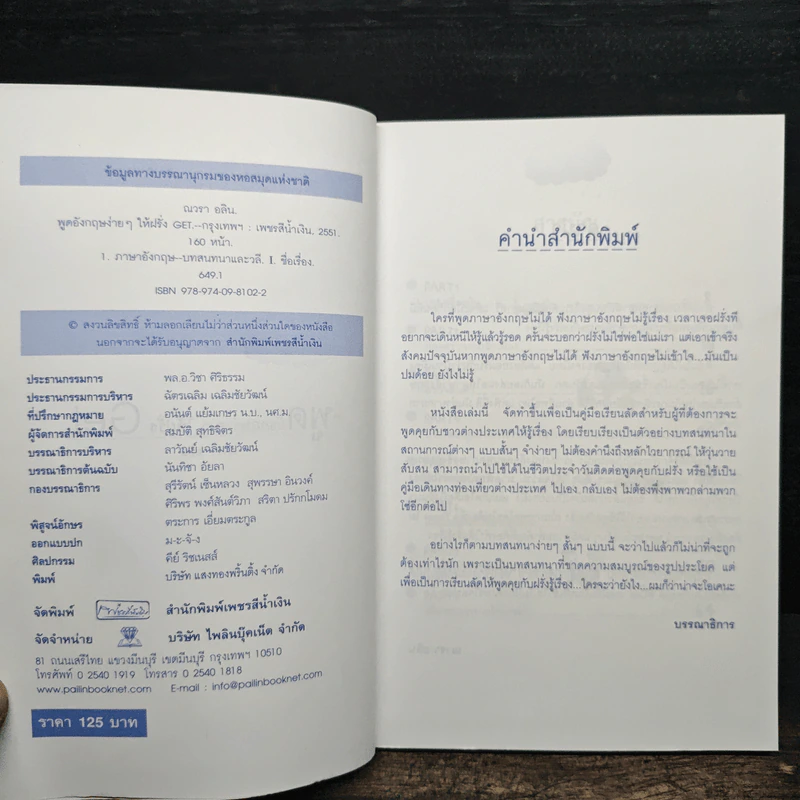 ข้อมูลทางบรรณานุกรมของหอสมุดแห่งชาติ
ณวรา อลิน.
พูดอังกฤษง่ายๆ ให้ฝรั่ง GET.--กรุงเทพฯ : เพชรสีน้ำเงิน, 2551.
160 หน้า.
1. ภาษาอังกฤษ--บทสนทนาและวลี. I. ชื่อเรื่อง.
649.1
ISBN 978-974-09-8102-2
© สงวนลิขสิทธิ์ ห้ามลอกเลียนไม่ว่าส่วนหนึ่งส่วนใดของหนังสือ
นอกจากจะได้รับอนุญาตจาก สำนักพิมพ์เพชรสีน้ำเงิน
ประธานกรรมการ พล.อ.วิชา ศิริธรรม
ประธานกรรมการบริหาร ฉัตรเฉลิม เฉลิมชัยวัฒน์
ที่ปรึกษากฎหมาย อนันต์ แย้มเกษร น.บ., นศ.ม.
ผู้จัดการสำนักพิมพ์ สมบัติ สุทธิจิตร
บรรณาธิการบริหาร ลาวัณย์ เฉลิมชัยวัฒน์
บรรณาธิการต้นฉบับ นันทิชา อัยลา
กองบรรณาธิการ สุรีรัตน์ เซ็นหลวง สุพรรษา อินวงค์
ศิริพร พงค์สันต์วิภา สริตา ปรักกโมดม
พิสูจน์อักษร ตระการ เอี่ยมตระกูล
ออกแบบปก ม-ะ-จั-ง
ศิลปกรรม คีย์ วิชเนสส์
พิมพ์ บริษัท แสงทองพริ้นติ้ง จำกัด
จัดพิมพ์ สำนักพิมพ์เพชรสีน้ำเงิน
จัดจำหน่าย บริษัท ไพลินบุ๊คเน็ต จำกัด
81 ถนนเสรีไทย แขวงมีนบุรี เขตมีนบุรี กรุงเทพฯ 10510
โทรศัพท์ 0 2540 1919 โทรสาร 0 2540 1818
www.pailinbooknet.com E-mail : info@pailinbooknet.com
ราคา 125 บาท
คำนำสำนักพิมพ์
ใครที่พูดภาษาอังกฤษไม่ได้ ฟังภาษาอังกฤษไม่รู้เรื่อง เวลาเจอฝรั่งที
อยากจะเดินหนีให้รู้แล้วรู้รอด ครั้นจะบอกว่าฝรั่งไม่ใช่พ่อใช่แม่เรา แต่เอาเข้าจริง
สังคมปัจจุบันหากพูดภาษาอังกฤษไม่ได้ ฟังภาษาอังกฤษไม่เข้าใจ...มันเป็น
ปมด้อย ยังไงไม่รู้
หนังสือเล่มนี้ จัดทำขึ้นเพื่อเป็นคู่มือเรียนลัดสำหรับผู้ที่ต้องการจะ
พูดคุยกับชาวต่างประเทศให้รู้เรื่อง โดยเรียบเรียงเป็นตัวอย่างบทสนทนาใน
สถานการณ์ต่างๆ แบบสั้นๆ จำง่ายๆ ไม่ต้องคำนึงถึงหลักไวยากรณ์ ให้วุ่นวาย
สับสน สามารถนำไปใช้ได้ในชีวิตประจำวันติดต่อพูดคุยกับฝรั่ง หรือใช้เป็น
คู่มือเดินทางท่องเที่ยวต่างประเทศ ไปเอง กลับเอง ไม่ต้องพึ่งพาพวกล่ามพวก
โข่อีกต่อไป
อย่างไรก็ตามบทสนทนาง่ายๆ สั้นๆ แบบนี้ จะว่าไปแล้วก็ไม่น่าที่จะถูก
ต้องเท่าไรนัก เพราะเป็นบทสนทนาที่ขาดความสมบูรณ์ของรูปประโยค แต่
เพื่อเป็นการเรียนลัดให้พูดคุยกับฝรั่งรู้เรื่อง...ใครจะว่ายังไง...ผมก็ว่าน่าจะโอเคนะ
บรรณาธิการ